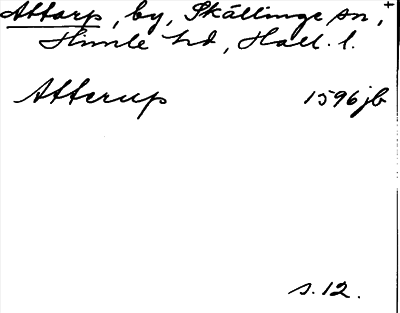 Attarp, by, Skällinge sn,
Himle hd, Hall. l.
Atterup 1596 jb
s. 12.